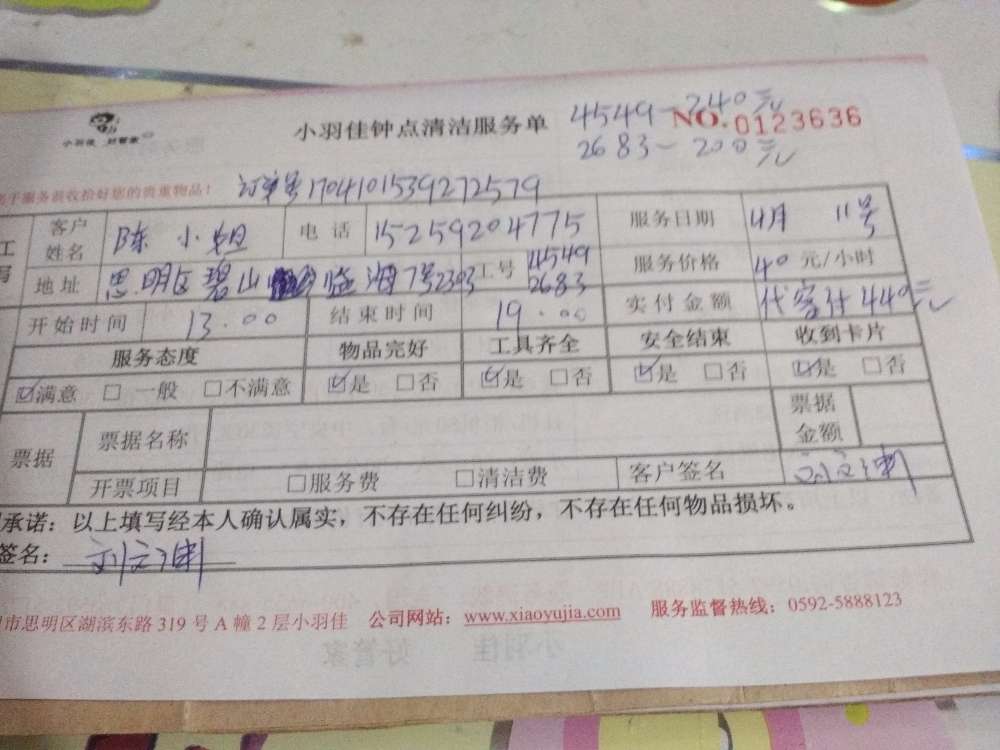 小羽佳 好管家
小羽佳钟点清洁服务单 NO.0123636
4549-240元
2683-200元
于服务前收拾好您的贵重物品!
订单号1704101539272579
客户姓名 陈小姐 电话 15259204775 服务日期 4月 11号
地址 思明区碧山临海7号2303 工号 4549 2683 服务价格 40元/小时
开始时间 13.00 结束时间 19.00 实付金额 代客付440元
服务态度 物品完好 工具齐全 安全结束 收到卡片
☑满意 □一般 □不满意 ☑是 □否 ☑是 □否 ☑是 □否 ☑是 □否
票据 票据名称 票据金额
开票项目 □服务费 □清洁费 客户签名
承诺:以上填写经本人确认属实,不存在任何纠纷,不存在任何物品损坏。
签名:
市思明区湖滨东路319号A幢2层小羽佳 公司网站:www.xiaoyujia.com 服务监督热线:0592-5888123